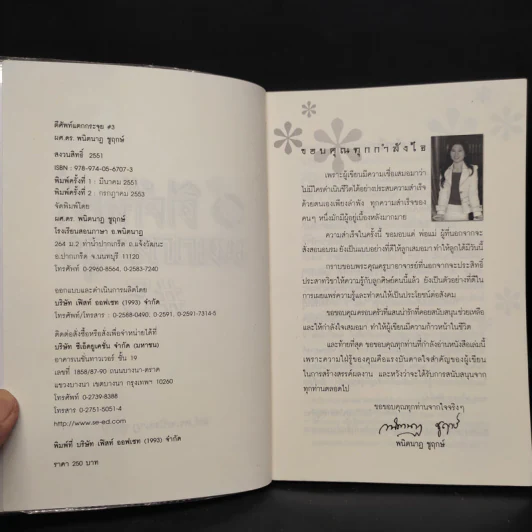 ตีศัพท์แตกกระจุย #3
ผศ.ดร. พนิตนาฏ ชูฤกษ์
สงวนสิทธิ์ 2551
ISBN : 978-974-05-6707-3
พิมพ์ครั้งที่ 1 : มีนาคม 2551
พิมพ์ครั้งที่ 2 : กรกฎาคม 2553
จัดพิมพ์โดย
ผศ.ดร. พนิตนาฏ ชูฤกษ์
โรงเรียนสอนภาษา อ.พนิตนาฏ
264 ม.2 ท่าน้ำปากเกร็ด ถ.แจ้งวัฒนะ
อ.ปากเกร็ด จ.นนทบุรี 11120
โทรศัพท์ 0-2960-8564, 0-2583-7240
ออกแบบและดำเนินการผลิตโดย
บริษัท เฟิสท์ ออฟเซท (1993) จำกัด
โทรศัพท์/โทรสาร : 0-2588-0490. 0-2591, 0-2591-7314-5
ติดต่อสั่งซื้อหรือสั่งเพื่อจำหน่ายได้ที่
บริษัท ซีเอ็ดยูเคชั่น จำกัด (มหาชน)
อาคารเนชั่นทาวเวอร์ ชั้น 19
เลขที่ 1858/87-90 ถนนบางนา-ตราด
แขวงบางนา เขตบางนา กรุงเทพฯ 10260
โทรศัพท์ 0-2739-8388
โทรสาร 0-2751-5051-4
http://www.se-ed.com
พิมพ์ที่ บริษัท เฟิสท์ ออฟเซท (1993) จำกัด
ราคา 250 บาท
ขอบคุณทุกกำลังใจ
เพราะผู้เขียนมีความเชื่อเสมอมาว่า
ไม่มีใครดำเนินชีวิตได้อย่างประสบความสำเร็จ
ด้วยตนเองเพียงลำพัง ทุกความสำเร็จของ
คนๆ หนึ่งมักมีผู้อยู่เบื้องหลังมากมาย
ความสำเร็จในครั้งนี้ ขอมอบแด่ พ่อแม่ ผู้ที่นอกจากจะ
สั่งสอนอบรม ยังเป็นแบบอย่างที่ดีให้ลูกเสมอมา ทำให้ลูกได้มีวันนี้
กราบขอบพระคุณครูบาอาจารย์ที่นอกจากจะประสิทธิ์
ประสาทวิชาให้ความรู้กับลูกศิษย์คนนี้แล้ว ยังเป็นตัวอย่างที่ดีใน
การเผยแพร่ความรู้และทำตนให้เป็นประโยชน์ต่อสังคม
ขอขอบคุณครอบครัวที่แสนน่ารักที่คอยสนับสนุนช่วยเหลือ
และให้กำลังใจเสมอมา ทำให้ผู้เขียนมีความก้าวหน้าในชีวิต
และท้ายที่สุด ขอขอบคุณทุกท่านที่กำลังอ่านหนังสือเล่มนี้
เพราะความใฝ่รู้ของคุณคือแรงบันดาลใจสำคัญของผู้เขียน
ในการสร้างสรรค์ผลงาน และหวังว่าจะได้รับการสนับสนุนจาก
ทุกท่านตลอดไป
ขอขอบคุณทุกท่านจากใจจริงๆ
พนิตนาฏ ชูฤกษ์
พนิตนาฏ ชูฤกษ์